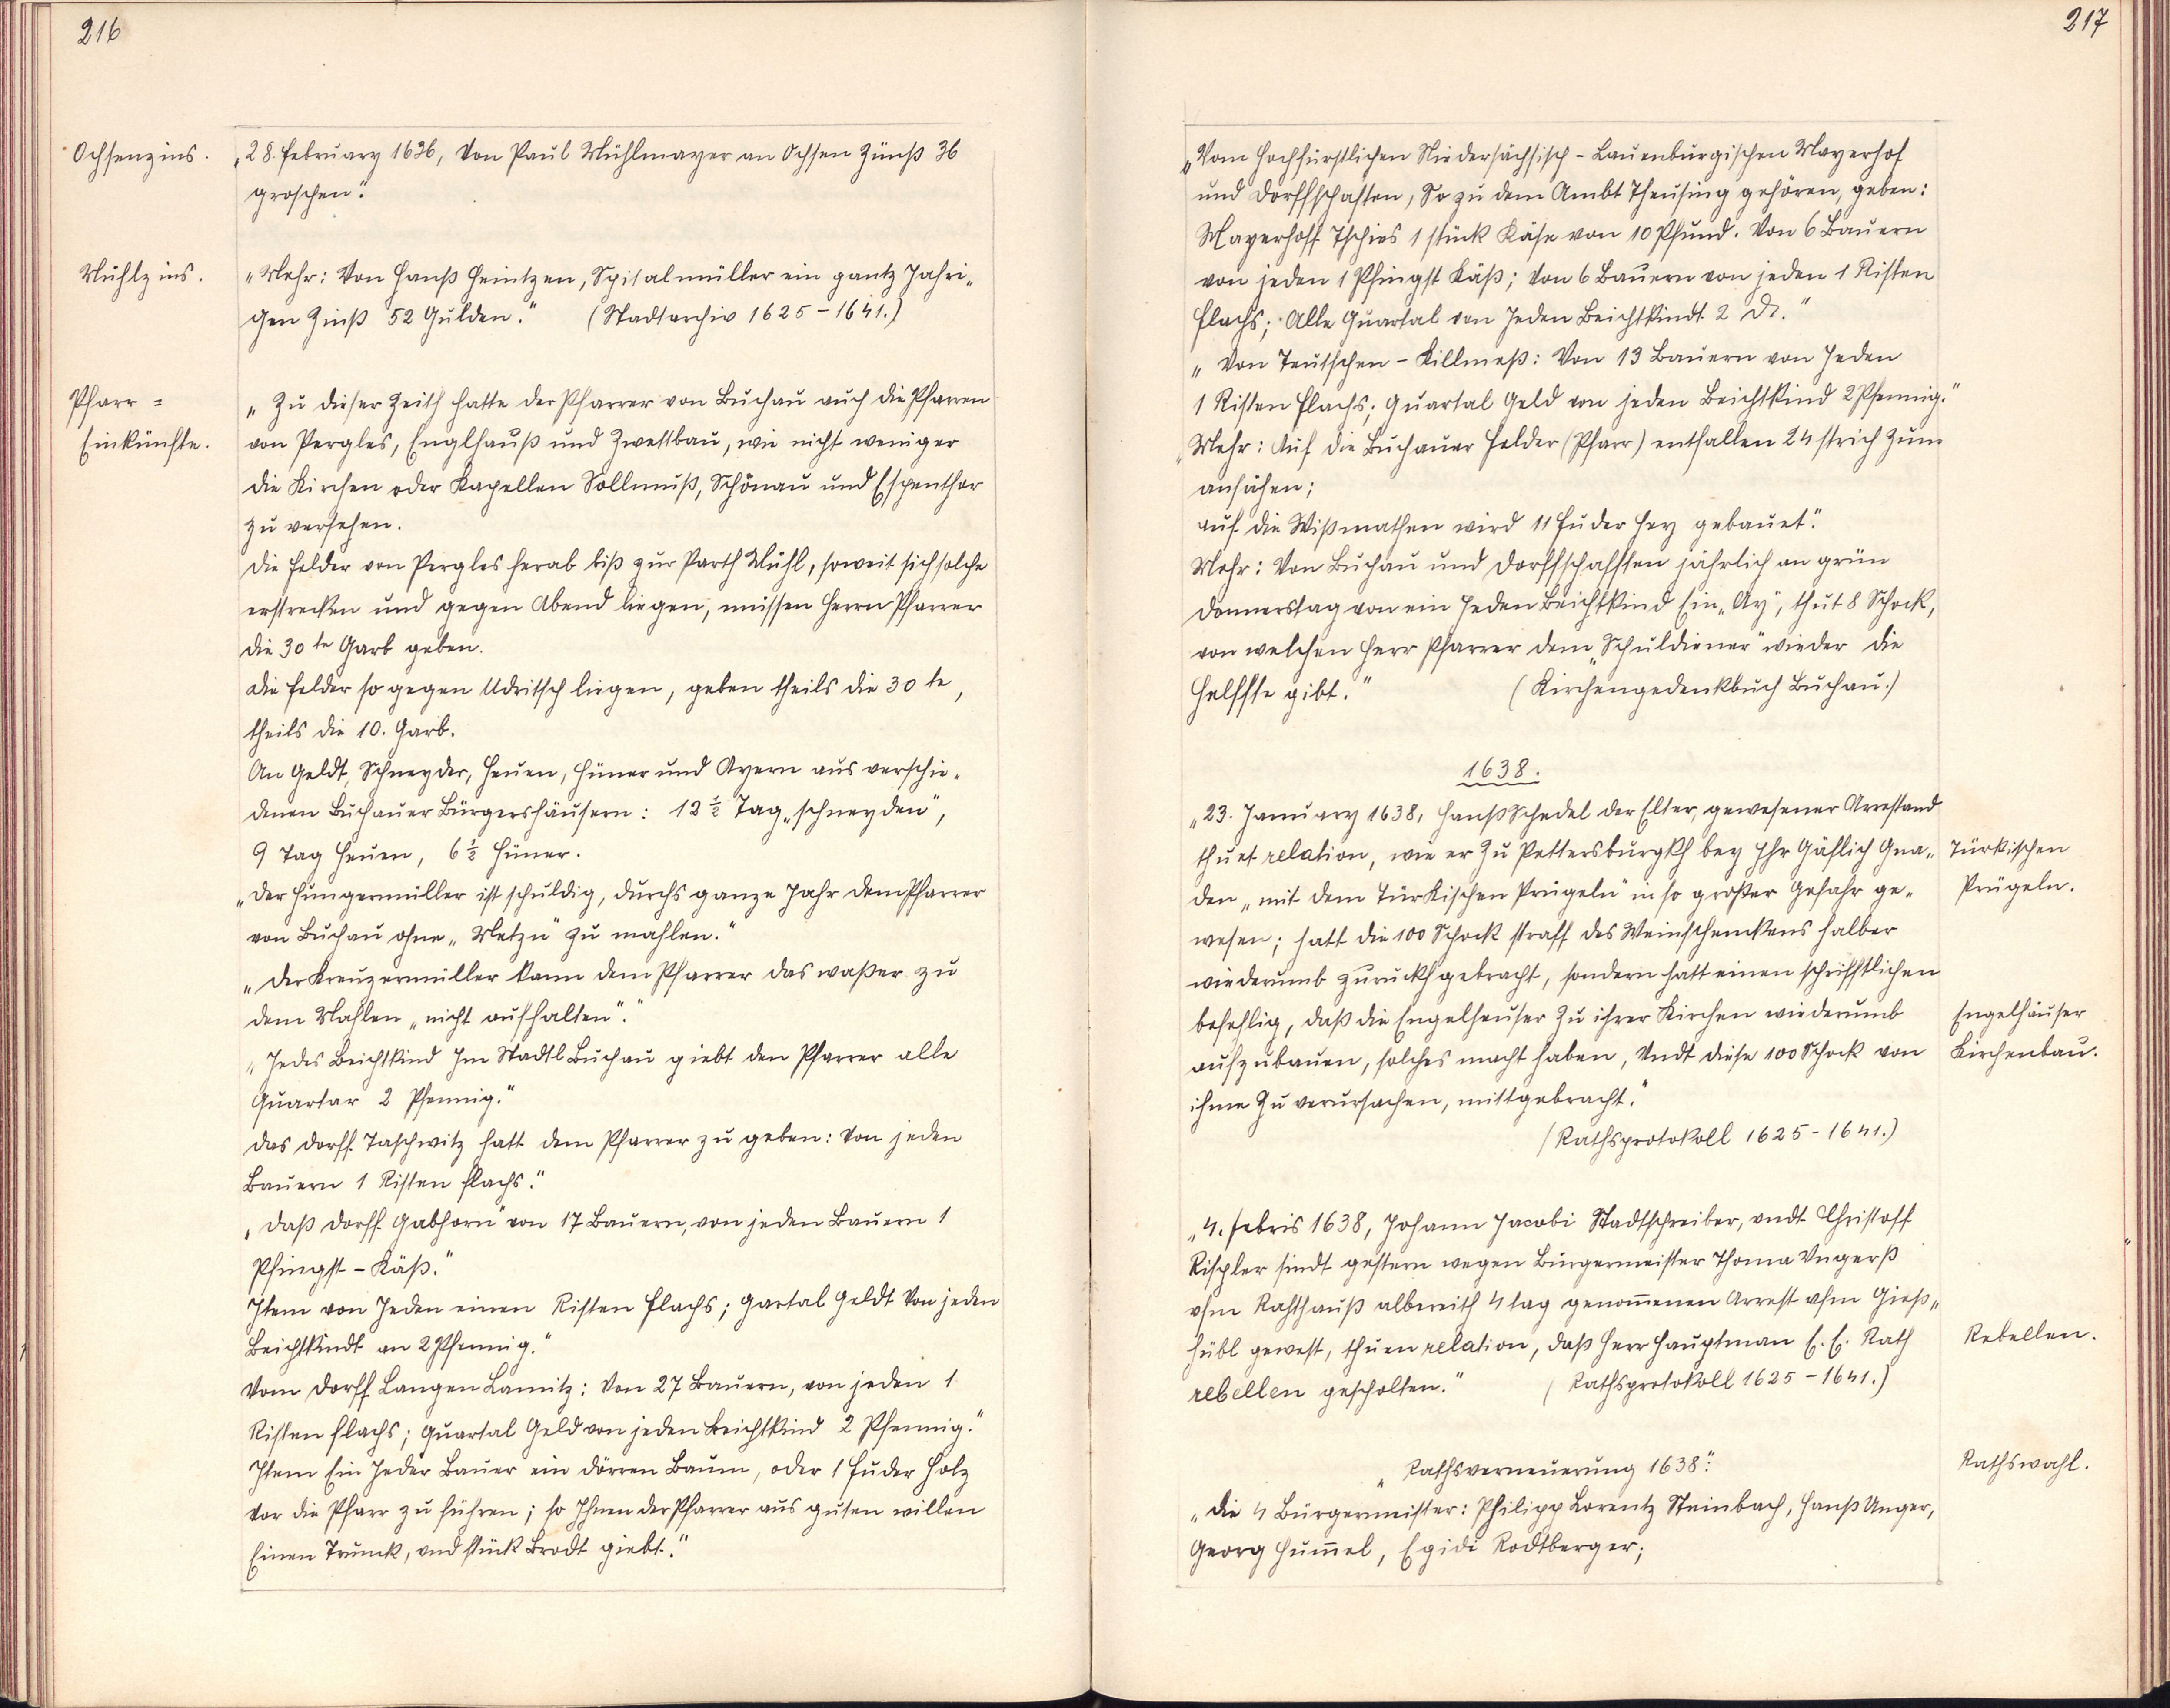 216
Ochsenzins.
„28. february 1636, Von Paul Mühlmayer an Ochsen Zünß 36
groschen."
Mühlzins.
„Mehr: Von Hanß Heintzen, Spitalmüller ein gantz Jahri„
gen Zinß 52 Gulden." (Stadtarchiv 1625-1641.)
Pfarr =
Einkünfte.
„Zu dieser Zeith hatte der Pfarrer von Buchau auch die Pfarren
von Pergles, Englhauß und Zwettbau, wie nicht weniger
die Kirchen oder Kapellen Sollmuß, Schönau und Espenthor
zu versehen.
die felder von Pergles herab biß zur Parth Mühl, soweit sich solche
erstrecken und gegen Abend liegen, müssen Herrn Pfarrer
die 30te Garb geben.
die felder so gegen Udritsch liegen, geben theils die 30te,
theils die 10. Garb.
An Geldt, Schneyder, Heuen, Hüner und Ayern aus verschie„
denen Buchauer Bürgershäusern: 12½ Tag „schneyden",
9 Tag Heuen, 6½ Hüner.
„der Hungermüller ist schuldig, durchs ganze Jahr dem Pfarrer
von Buchau ohne „Metzn" zu mahlen."
„der Kreuzermüller kann dem Pfarrer das waßer zu
dem Mahlen „nicht aufhalten"."
„Jedes Beichtkind Im Stadtl Buchau giebt den Pfarrer alle
Quartar 2 Pfennig."
das dorff Taschwitz hatt dem Pfarrer zu geben: Von jeden
Bauern 1 Risten flachs."
„daß dorff Gabhorn" von 17 Bauern, von jeden Bauern 1
Pfingst-Käß."
Item von Jeden einen Risten flachs; Gartal Geldt Von jeden
Beichtkindt an 2 Pfennig."
Vom dorff Langen Lamitz: Von 27 Bauern, von jeden 1
Risten flachs; Quartal Geld von jeden Beichtkind 2 Pfennig."
Item Ein Jeder Bauer ein dörren Baum, oder 1 fuder Holz
vor die Pfarr zu führen; so Ihnen der Pfarrer aus guten willen
Einen Trunck, und stück Brodt giebt."
217
„Vom Hochfürstlichen Niedersächsisch-Lauenburgischen Mayerhof
und dorffschaften, So zu dem Ambt Theusing gehören, geben:
Mayerhoff Tschies 1 stück Käse von 10 Pfund. Von 6 Bauern
von jeden 1 Pfingst Käß; Von 6 Bauern von jeden 1 Risten
flachs; Alle Quartal von Jeden Beichtkindt 2 d."
„Von Teutschen-Killmeß: Von 13 Bauern von Jeden
1 Risten flachs; Quartal Geld von jeden Beichtkind 2 Pfennig."
„Mehr: Auf die Buchauer felder (Pfarr) entfallen 24 strich zum
ansähen;
auf die Wißmathen wird 11 fuder Hey gebauet."
Mehr: Von Buchau und dorffschafften jährlich an grün
donnerstag von ein Jeden Beichtkind Ein „Ay", thut 8 Schock,
von welchen Herr Pfarrer dem „Schuldiener" wieder die
Helffte gibt." (Kirchengedenkbuch Buchau.)
1638.
„23. January 1638, Hanß Schedel der Elter, gewesener Arrestand
thuet relation, wie er Zu Pettersburgkh bey Ihr Gäflich Gna„
den „mit dem Türkischen Prügeln" in so großer Gefahr ge„
wesen; hatt die 100 Schock straff des Weinschenckens halber
wiederumb zuruckh gebracht, sondern hatt einen schrifftlichen
befehlig, daß die Engelheuser Zu ihrer Kirchen wiederumb
aufzubauen, solches macht haben, Undt diese 100 Schock von
ihme Zu verursachen, mittgebracht."
(Rathsprotokoll 1625-1641.)
Türkischen
Prügeln.
Engelhäuser
Kirchenbau.
„4. febris 1638, Johann Jacobi Stadtschreiber, undt Christoff
Rischler sindt gestern wegen Bürgermeister Thoma Ungerß
ufm Rahthauß albereith 4 tag genom̄enen Arrest ufm Gieß„
hübl gewest, thuen relation, daß Herr Hauptman E. E. Rath
rebellen gescholten." (Rathsprotokoll 1625-1641.)
Rebellen.
„Rathsverneuerung 1638":
Rathswahl.
„die 4 Bürgermeister: Philipp Lorentz Steinbach, Hanß Unger,
Georg Hum̄el, Egidi Rodtberger;